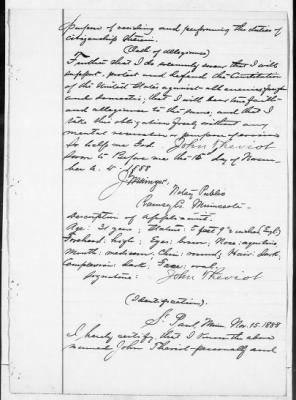 purpose of residing and performing the duties of
citizenship therein.
(Oath of allegiance)
Further that I do solemnly swear that I will
support, protect and defend the Constitution
of the United States against all enemies foreign
and domestic; that I will bear true faith
and allegiance to the same, and that I
take this obligation freely without any
mental reservation or purpose of evasion
So help me God. John Theviot
Sworn to Before me this 15th day of Novem-
ber A.D. 1888
Notary Public
Ramsey Co Minnesota
Description of applicant.
Age: 31 years; Stature: 5 feet 9 inches (Eng);
Forehead: high; Eyes: brown; Nose: aquiline
Mouth: medium; Chin: round; Hair: dark
Complexion: dark; Face: oval.
Signature: John Theviot
(Identification).
St. Paul Minn Nov. 15. 1888
I hereby certify that I know the above
named John Theviot personally and